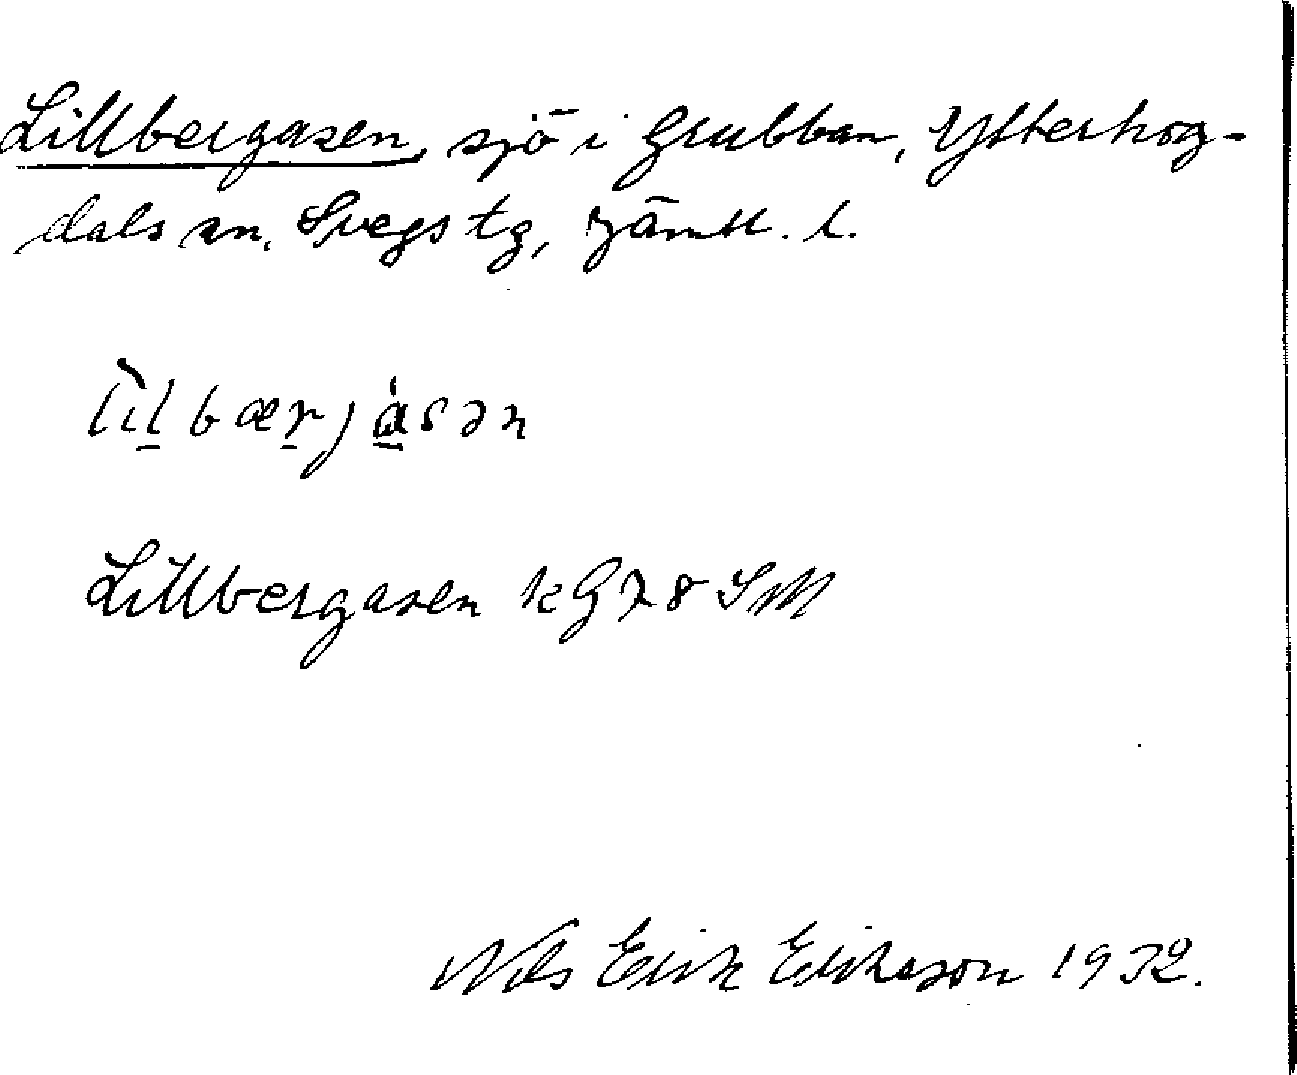 Lillbergasen, sjö i Grubban, Ytterhog-
dals sn, Svegs tg, Jämtl. l.
lìl̠bær̠ja̠̍sən
Lillbergasen kG 78 SM
Nils Erik Erikson 1932.